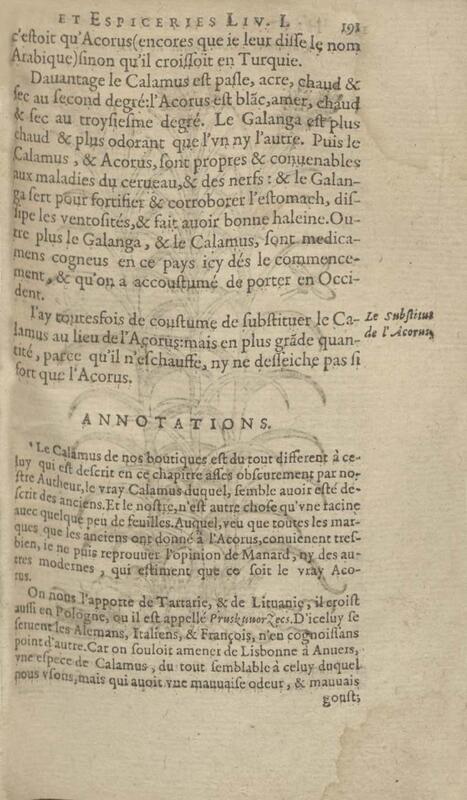 ET ESPICERIES LIV. I. 191
c'estoit qu'Acorus(encores que ie leur disse le nom
Arabique)sinon qu'il croissoit en Turquie.
Dauantage le Calamus est pasle, acre, chaud &
sec au second degré:l'Acorus est blãc,amer, chaud
& sec au troysiesme degré. Le Galanga est plus
chaud & plus odorant que l'vn ny l'autre. Puis le
Calamus, & Acorus, sont propres & conuenables
aux maladies du cerueau,& des nerfs : & le Galan-
ga sert pour fortifier & corroborer l'estomach, dis-
sipe les ventosités,& fait auoir bonne haleine.Ou-
tre plus le Galanga, & le Calamus, sont medica-
mens cogneus en ce pays icy dés le commence-
ment, & qu'on a accoustumé de porter en Occi-
dent.
I'ay toutesfois de coustume de substituer le Ca-
lamus au lieu de l'Acorus:mais en plus grãde quan-
tité, parce qu'il n'eschauffe, ny ne desseiche pas si
fort que l'Acorus.
Le Substitut
de l'Acorus,
ANNOTATIONS.
Le Calamus de nos boutiques est du tout different à ce-
luy qui est descrit en ce chapitre asses obscurement par no-
stre Autheur,le vray Calamus duquel, semble auoir esté de-
scrit des anciens.Et le nostre,n'est autre chose qu'vne racine
auec quelque peu de feuilles.Auquel,veu que toutes les mar-
ques que les anciens ont donné à l'Acorus,conuienent tres-
bien, ie ne puis reprouuer l'opinion de Manard, ny des au-
tres modernes, qui estiment que ce soit le vray Aco-
rus.
On nous l'apporte de Tartarie, & de Lituanie, il croist
aussi en Pologne, ou il est appellé Pruskunorzecs.D'iceluy se
seruent les Alemans, Italiens, & François, n'en cognoissans
point d'autre.Car on souloit amener de Lisbonne à Anuers,
vne espece de Calamus, du tout semblable à celuy duquel
nous vsons,mais qui auoit vne mauuaise odeur, & mauuais
goust;